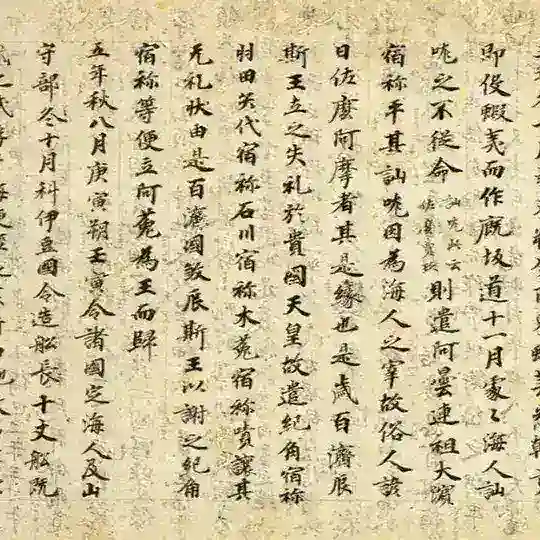 即役蝦夷而作厩坂道十一月處々海人訕
哤之不從命訕哤此云佐麼賣玖則遣阿曇連祖大濱
宿祢平其訕哤因為海人之宰故俗人諺
曰佐麼阿摩者其是緣也是歲百濟辰
斯王立之失礼於貴國天皇故遣紀角宿祢
羽田矢代宿祢石川宿祢木菟宿祢嘖讓其
无礼狀由是百濟國殺辰斯王以謝之紀角
宿祢等便立阿菀為王而歸
五年秋八月庚寅朔壬寅令諸國定海人及山
守部冬十月科伊豆國令造船長十丈船既